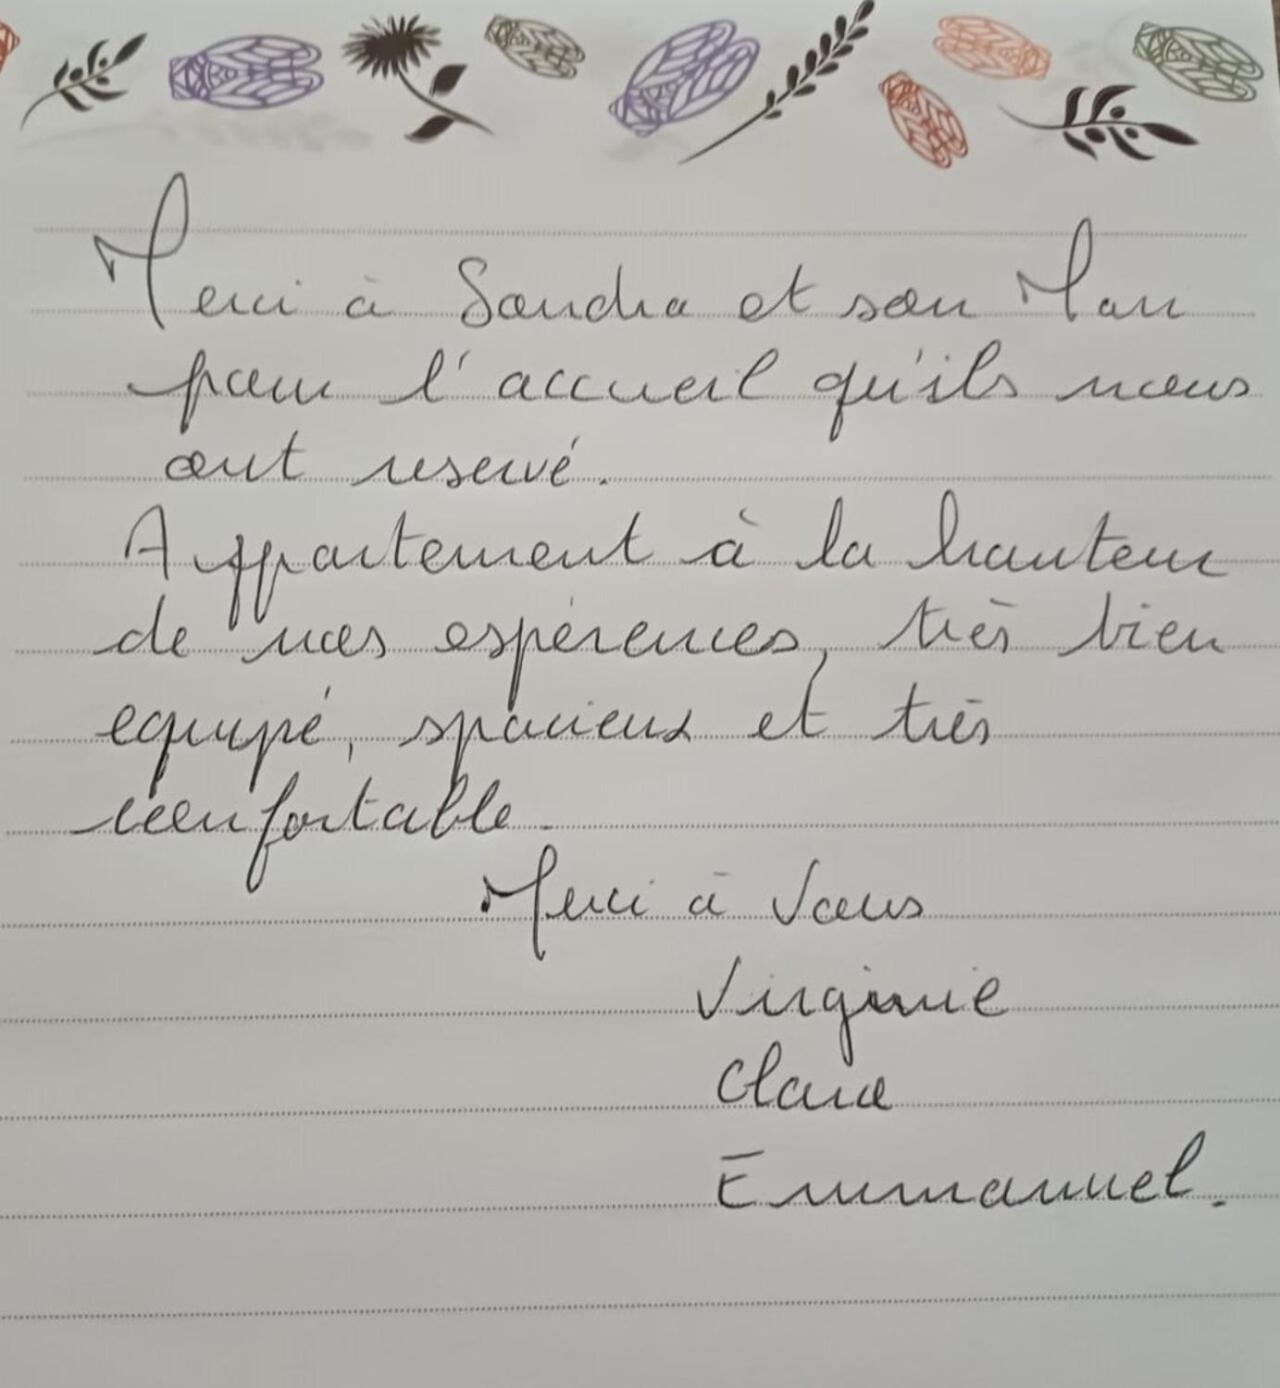 Merci à Sandra et son Mari
pour l'accueil qu'ils nous
ont reservé.
Appartement à la hauteur
de nos espérences, très bien
equipé, spacieux et très
confortable.
Merci à Vous
Virginie
Clara
Emmanuel.